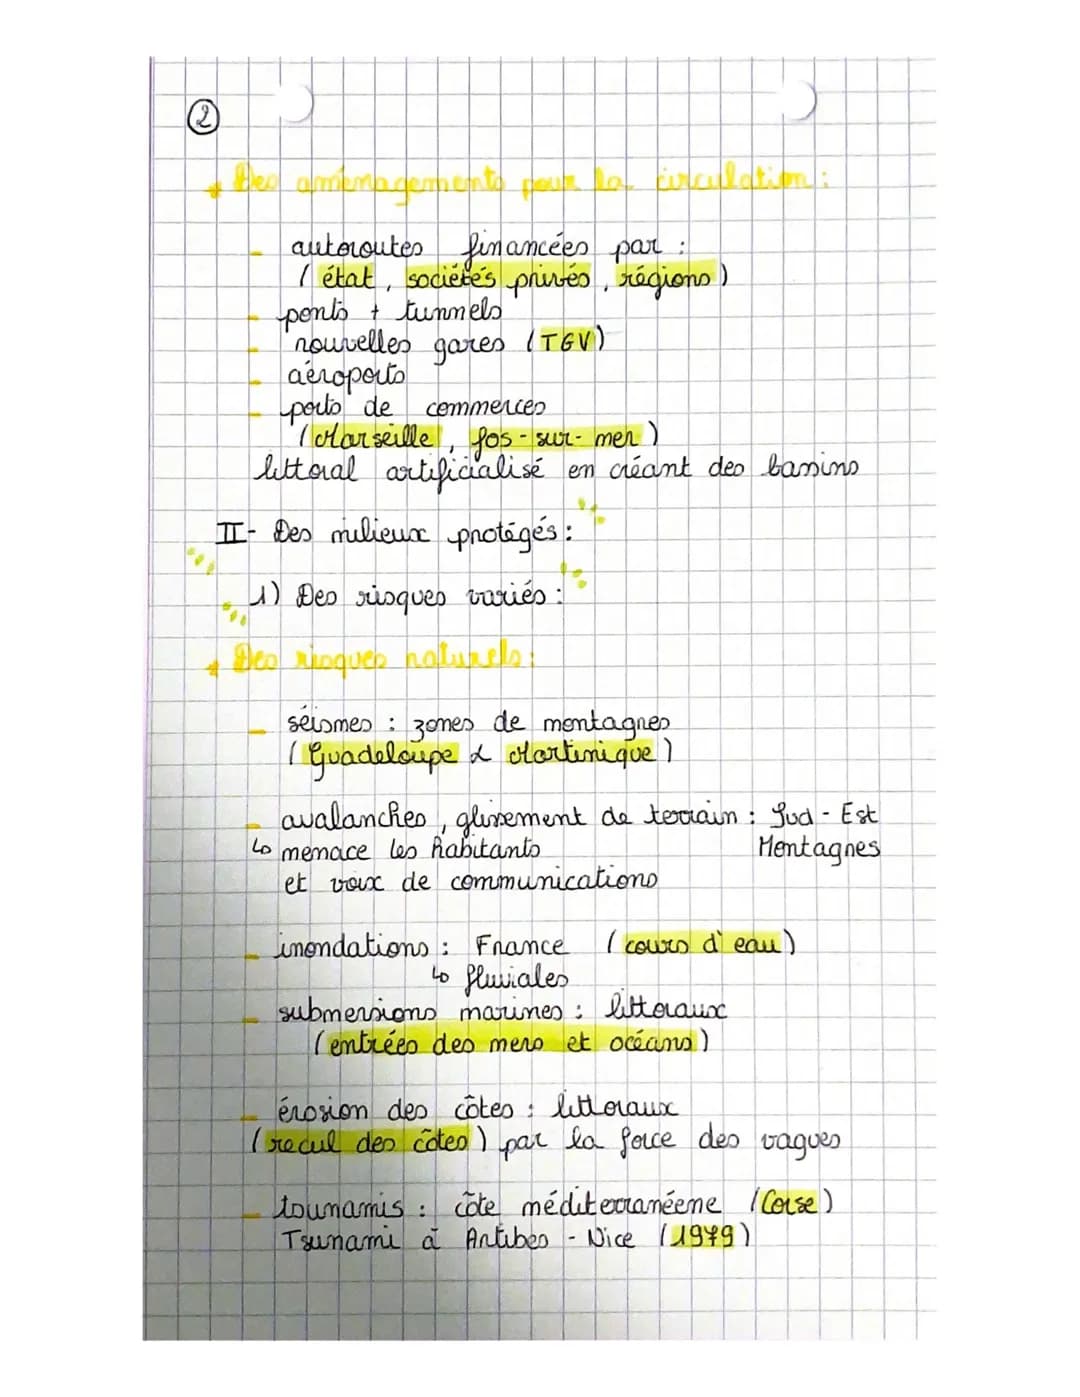 ②
* Des aménagements pour la circulation :
- autoroutes financées par :
( état, sociétés privés, régions )
- ponts + tunnels
- nouvelles gares ( TGV )
- aéroports
- ports de commerces
( Marseille, fos-sur-mer )
littoral artificialisé en créant des bassins
II- Des milieux protégés :
1) Des risques variés :
* Des risques naturels :
- séismes : zones de montagnes
( Guadeloupe & Martinique )
- avalanches, glissement de terrain : Sud-Est
↳ menace les habitants Montagnes
et voix de communications
- inondations : France ( cours d'eau )
↳ fluviales
- submersions marines : littoraux
( entrées des mers et océans )
- érosion des côtes : littoraux
( recul des côtes ) par la force des vagues
- tsunamis : côte méditerranéene ( Corse )
Tsunami à Antibes - Nice ( 1979 )